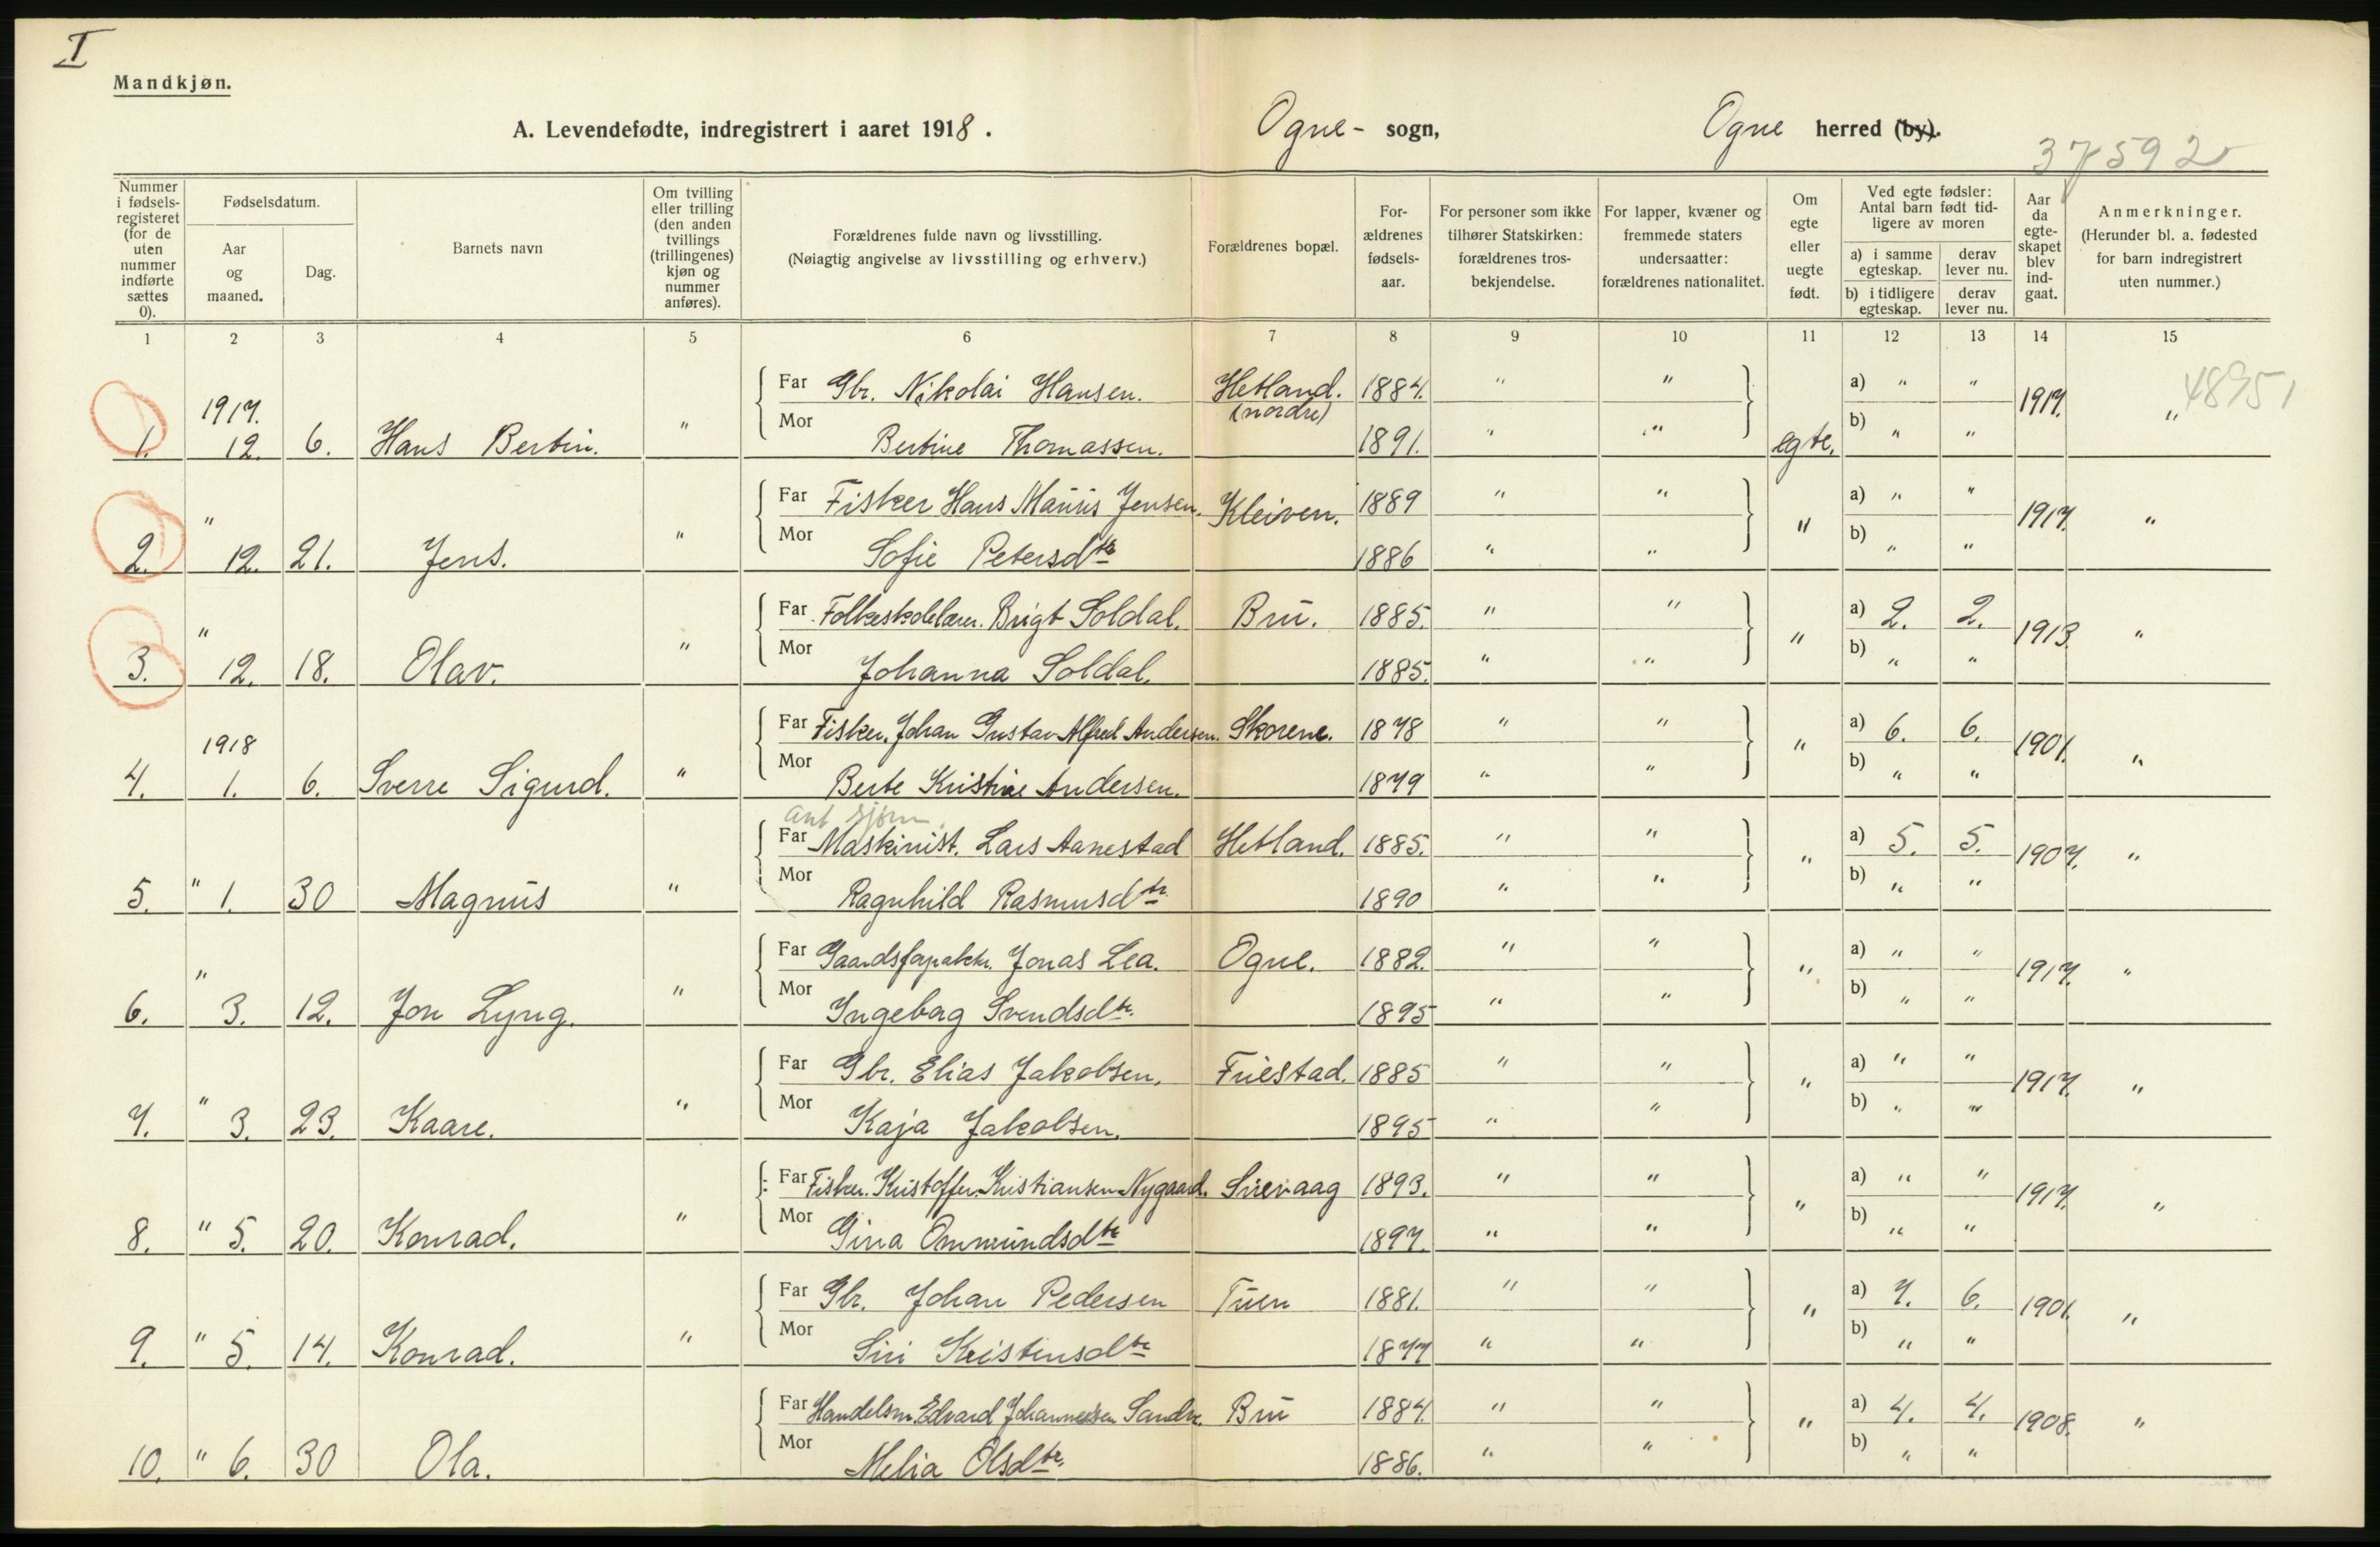 I
Mandkjøn.
A. Levendefødte, indregistrert i aaret 1918. Ogne- sogn, Ogne herred (by).
37592
Nummer i fødselsregisteret (for de uten nummer indførte sættes 0).
Fødselsdatum.
Aar og maaned.
Dag.
Barnets navn
Om tvilling eller trilling (den anden tvillings (trillingenes) kjøn og nummer anføres).
Forældrenes fulde navn og livsstilling.
(Nøiagtig angivelse av livsstilling og erhverv.)
Forældrenes bopæl.
Forældrenes fødselsaar.
For personer som ikke tilhører Statskirken: forældrenes trosbekjendelse.
For lapper, kvæner og fremmede staters undersaatter: forældrenes nationalitet.
Om egte eller uegte født.
Ved egte fødsler: Antal barn født tidligere av moren
a) i samme egteskap. derav lever nu.
b) i tidligere egteskap. derav lever nu.
Aar da egteskapet blev indgaat.
Anmerkninger.
(Herunder bl. a. fødested for barn indregistrert uten nummer.)
1 2 3 4 5 6 7 8 9 10 11 12 13 14 15
48951
Far Gbr. Nikolai Hansen. Hetland. (nordre) 1884. " " a) " " 1917. "
1. 1917. 12. 6. Hans Bertin. " Mor Bertine Thomassen. 1891. " " egte. b) " "
Far Fisker Hans Maurus Jensen. Kleiven. 1889 " " a) " " 1917. "
2. " 12. 21. Jens. " Mor Sofie Petersdtr 1886 " " " b) " "
Far Folkeskolelærer. Brigt Soldal. Bru. 1885. " " a) 2. 2. 1913. "
3. " 12. 18. Olav. " Mor Johanna Soldal. 1885. " " " b) " "
Far Fisker. Johan Gustav Alfred Andersen. Skorene. 1878 " " a) 6. 6. 1901. "
4. 1918 1. 6. Sverre Sigurd. " Mor Berte Kristine Andersen. 1879 " " " b) " "
Far Maskinist. Lars Aanestad Hetland. 1885. " " a) 5. 5. 1907. "
5. " 1. 30 Magnus " Mor Ragnhild Rasmusdtr 1890 " " " b) " "
Far Jonas Lea. Ogne. 1882. " " a) " " 1917. "
6. " 3. 12. Jon Lyng. " Mor Ingeborg Svendsdtr. 1895 " " " b) " "
Far Gbr. Elias Jakobsen. Fuestad. 1885 " " a) " " 1917. "
7. " 3. 23. Kaare. " Mor Kaja Jakobsen. 1895 " " " b) " "
Far Fisker. Kristoffer Kristiansen Nygaard. Sirevaag 1893. " " a) " " 1917. "
8. " 5. 20. Konrad. " Mor Gina Ommundsdtr 1897. " " " b) " "
Far Gbr. Johan Pedersen Tuen 1881. " " a) 7. 6. 1901. "
9. " 5. 14. Konrad. " Mor Siri Kristensdtr 1877 " " " b) " "
Far Handelsm. Edvard Johannessen Sandve Bru 1884. " " a) 4. 4. 1908. "
10. " 6. 30 Ola. Mor Melia Olsdtr. 1886. " " " b) " "